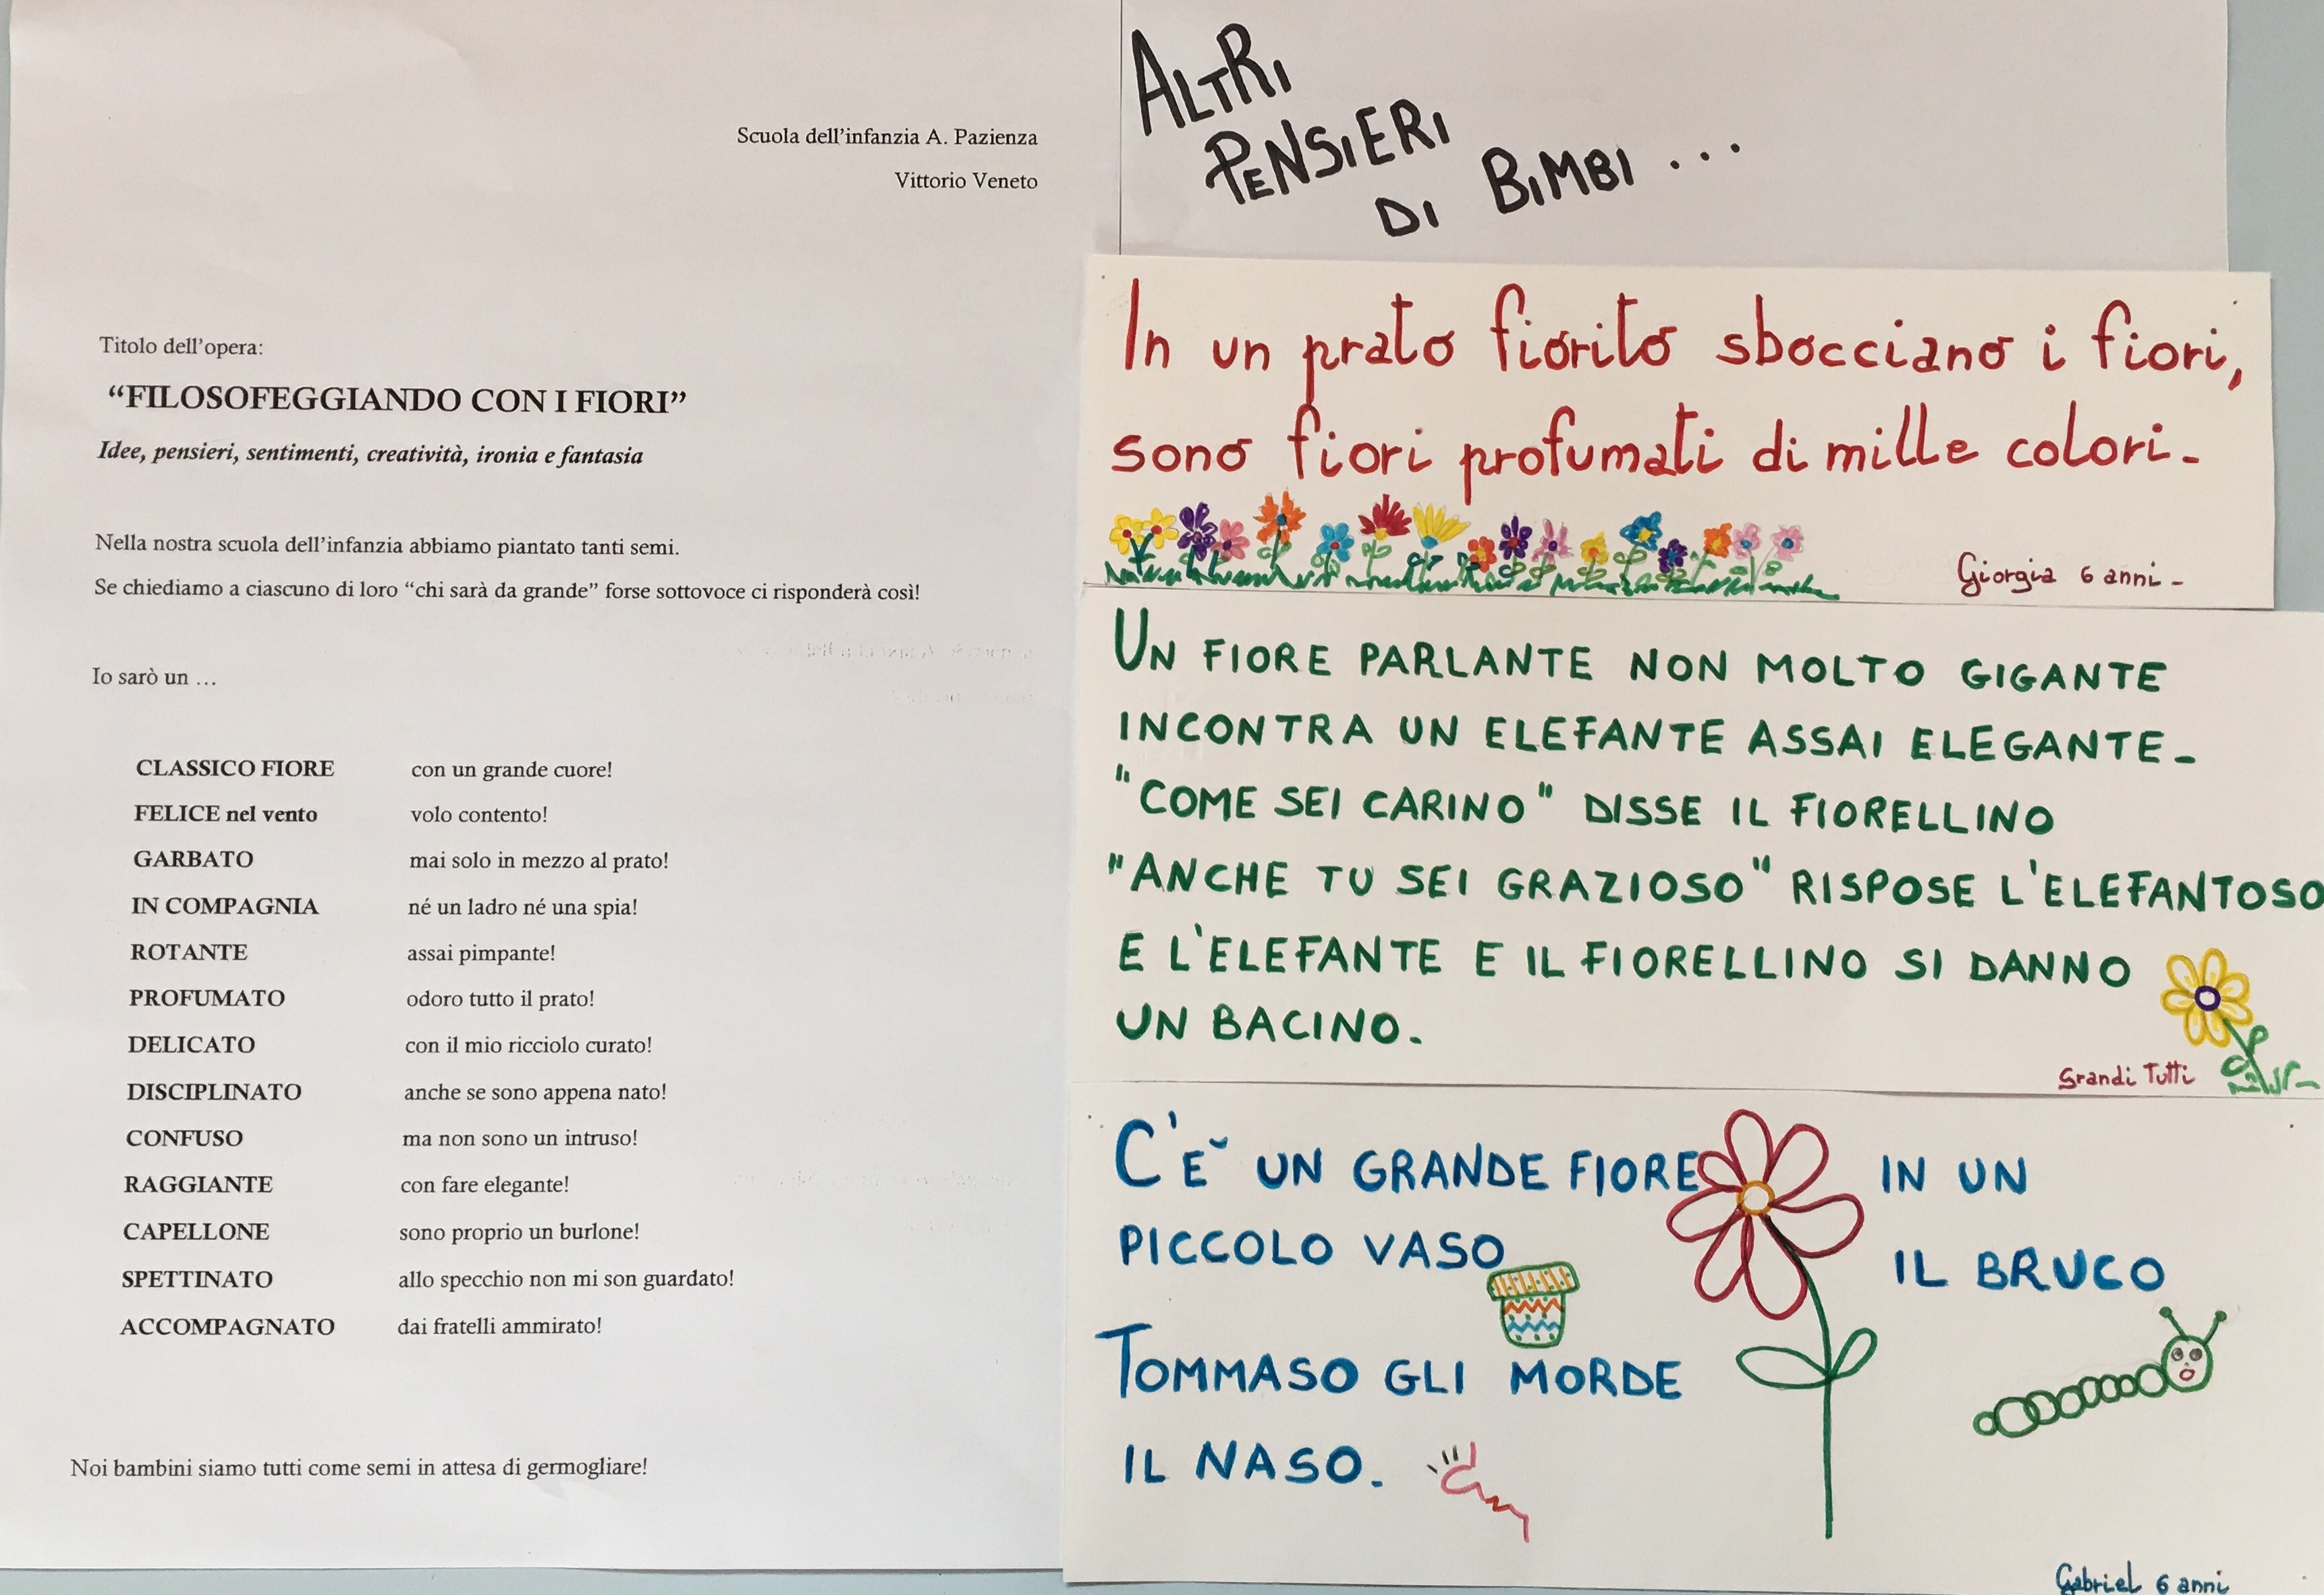 Scuola dell'infanzia A. Pazienza
Vittorio Veneto
Titolo dell'opera:
“FILOSOFEGGIANDO CON I FIORI”
Idee, pensieri, sentimenti, creatività, ironia e fantasia
Nella nostra scuola dell'infanzia abbiamo piantato tanti semi.
Se chiediamo a ciascuno di loro “chi sarà da grande” forse sottovoce ci risponderà così!
Io sarò un …
CLASSICO FIORE con un grande cuore!
FELICE nel vento volo contento!
GARBATO mai solo in mezzo al prato!
IN COMPAGNIA né un ladro né una spia!
ROTANTE assai pimpante!
PROFUMATO odoro tutto il prato!
DELICATO con il mio ricciolo curato!
DISCIPLINATO anche se sono appena nato!
CONFUSO ma non sono un intruso!
RAGGIANTE con fare elegante!
CAPELLONE sono proprio un burlone!
SPETTINATO allo specchio non mi son guardato!
ACCOMPAGNATO dai fratelli ammirato!
Noi bambini siamo tutti come semi in attesa di germogliare!
ALTRI
PENSIERI
DI BIMBI ...
In un prato fiorito sbocciano i fiori,
sono fiori profumati di mille colori-
Giorgia 6 anni-
UN FIORE PARLANTE NON MOLTO GIGANTE
INCONTRA UN ELEFANTE ASSAI ELEGANTE-
"COME SEI CARINO" DISSE IL FIORELLINO
"ANCHE TU SEI GRAZIOSO" RISPOSE L'ELEFANTOSO
E L'ELEFANTE E IL FIORELLINO SI DANNO
UN BACINO.
Grandi Tutti
C'È UN GRANDE FIORE IN UN
PICCOLO VASO IL BRUCO
TOMMASO GLI MORDE
IL NASO.
Gabriel 6 anni